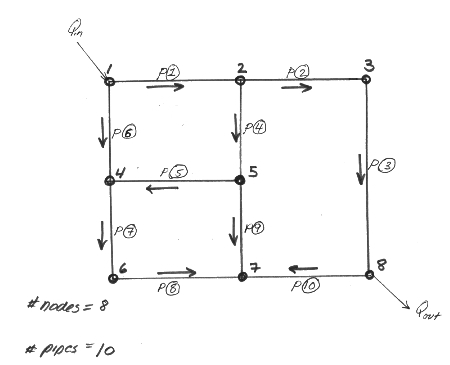 Qin
1 2 3
P① P②
P⑥ P④
P③
4 P⑤ 5
P⑦ P⑨
6 P⑧ 7 P⑩ 8
Qout
# nodes = 8
# pipes = 10